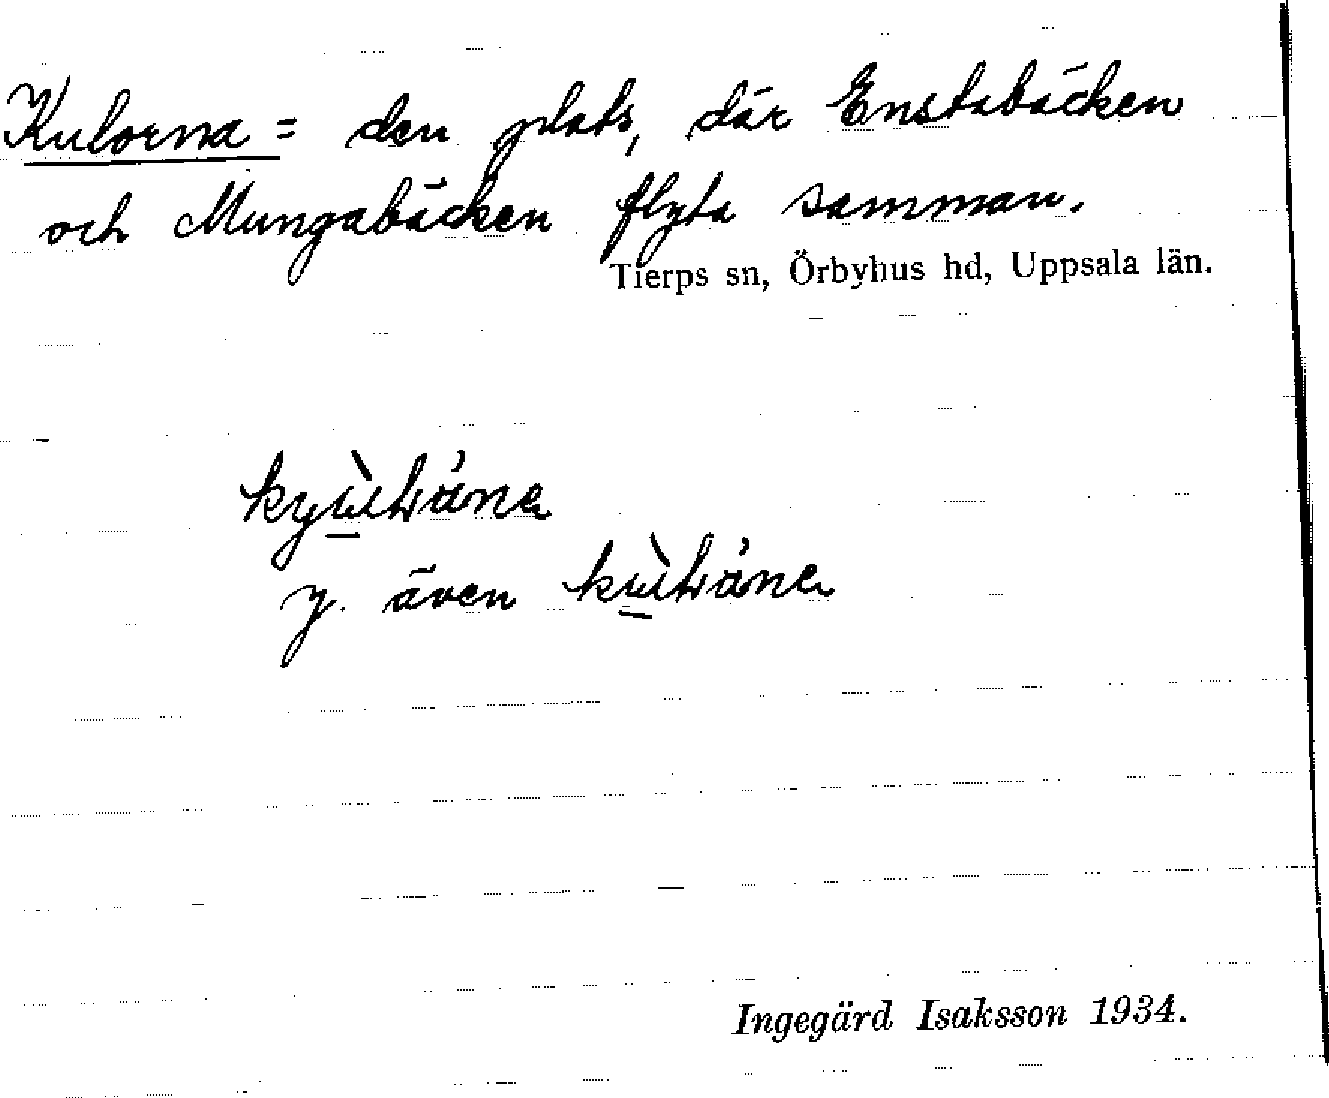 Kulorna = den plats, där Enstabäcken
och Mungabäcken flyta samman.
Tierps sn, Örbyhus hd, Uppsala län.
y. även
Ingegärd Isaksson 1934.